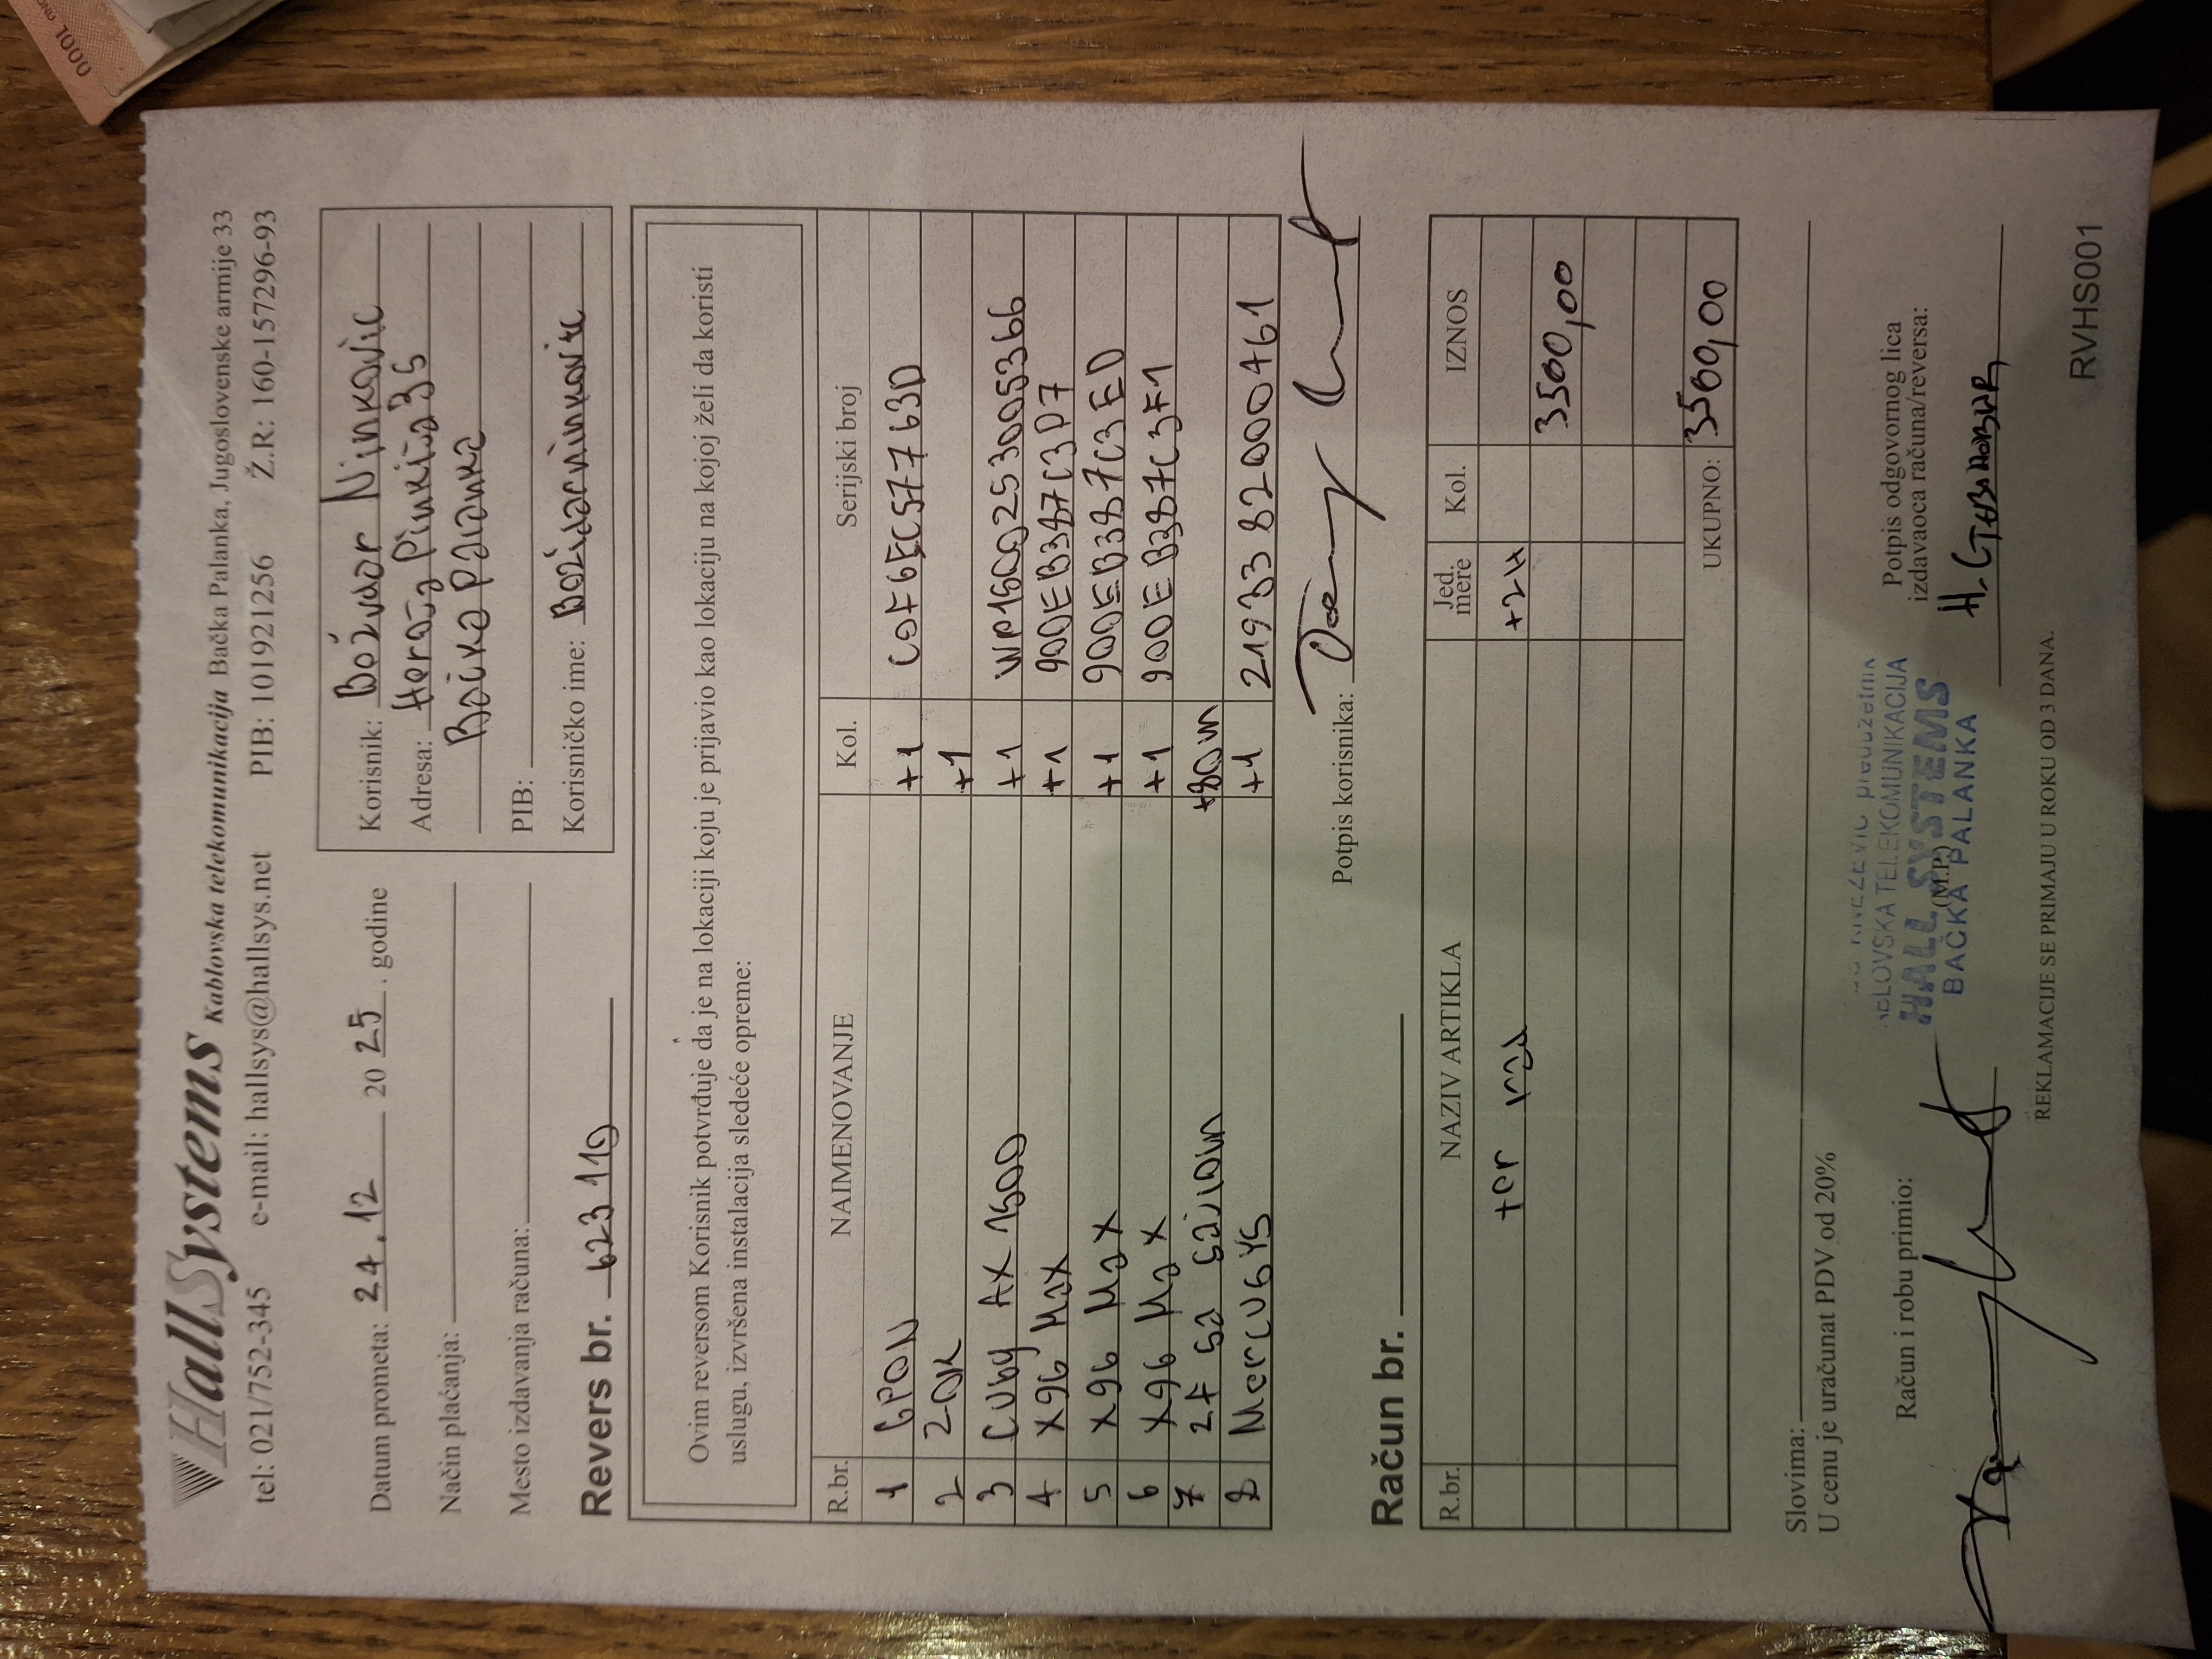 HallSystems Kablovska telekomunikacija Bačka Palanka, Jugoslovenske armije 33
tel: 021/752-345 e-mail: hallsys@hallsys.net PIB: 101921256 Ž.R: 160-157296-93
Datum prometa: 24.12 2025. godine
Način plaćanja:
Mesto izdavanja računa:
Korisnik: Božidar Ninković
Adresa: Heroja Pinkija 35
Bačka Palanka
PIB:
Korisničko ime: Bozidarninkovic
Revers br. 623110
Ovim reversom Korisnik potvrđuje da je na lokaciji koju je prijavio kao lokaciju na kojoj želi da koristi
uslugu, izvršena instalacija sledeće opreme:
R.br. NAIMENOVANJE Kol. Serijski broj
1 GPON +1
2 ZOK +1
3 CUDY AX 1500 +1 WP1500253005366
4 X96 Max +1 900EB387C3D7
5 X96 Max +1 900EB387C3ED
6 X96 Max +1 900EB387C3F1
7 2F sa sajlom +80m
8 Mercusys +1 2193382000461
Potpis korisnika:
Račun br.
R.br. NAZIV ARTIKLA Jed. mere Kol. IZNOS
+24
3500,00
UKUPNO: 3500,00
Slovima:
U cenu je uračunat PDV od 20%
Račun i robu primio:
(M.P.)
KABLOVSKA TELEKOMUNIKACIJA
HALL SYSTEMS
BAČKA PALANKA
Potpis odgovornog lica
izdavaoca računa/reversa:
REKLAMACIJE SE PRIMAJU U ROKU OD 3 DANA.
RVHS001
1000